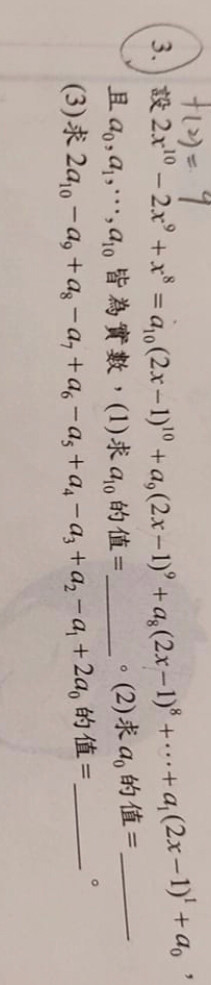 f(2)= 9
3. 設 2x¹⁰ − 2x⁹ + x⁸ = a₁₀(2x−1)¹⁰ + a₉(2x−1)⁹ + a₈(2x−1)⁸ + ⋯ + a₁(2x−1)¹ + a₀，
且 a₀, a₁, ⋯, a₁₀ 皆為實數，(1)求 a₁₀ 的值=______。(2)求 a₀ 的值=______
(3)求 2a₁₀ − a₉ + a₈ − a₇ + a₆ − a₅ + a₄ − a₃ + a₂ − a₁ + 2a₀ 的值=______。